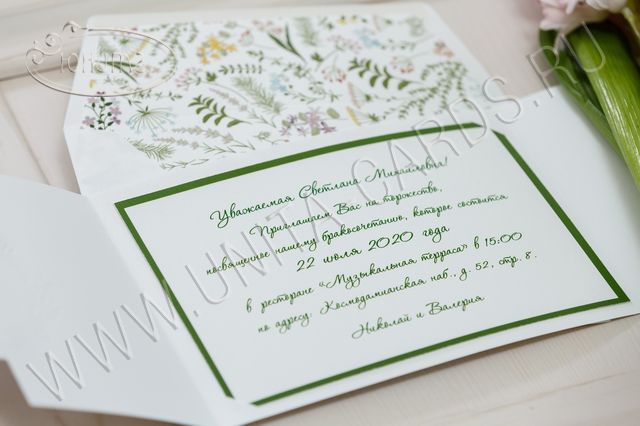 Уважаемая Светлана Михайловна!
Приглашаем Вас на торжество,
посвященное нашему бракосочетанию, которое состоится
22 июля 2020 года
в ресторане «Музыкальная терраса» в 15:00
по адресу: Космодамианская наб., д. 52, стр. 8.
Николай и Валерия
WWW.UNITA-CARDS.RU